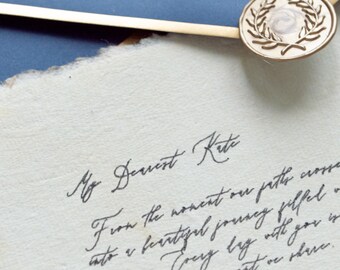 My Dearest Kate
From the moment our paths crosse
into a beautiful journey filled w
Every day with you is
've share.